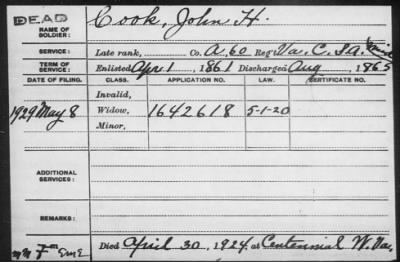 DEAD Cook, John H.
NAME OF SOLDIER:
SERVICE: Late rank, Co. A, 60 Reg't Va. C.S.A.
TERM OF SERVICE: Enlisted Apr 1, 1861 Discharged Aug, 1865
DATE OF FILING. CLASS. APPLICATION NO. LAW. CERTIFICATE NO.
Invalid,
1929 May 8 Widow, 1642618 5-1-20
Minor,
ADDITIONAL SERVICES:
REMARKS:
Died April 30, 1924, at Centennial W. Va.